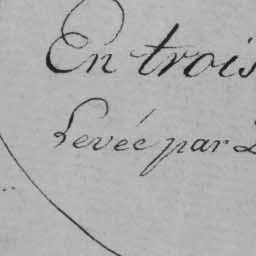 En trois
Levée par